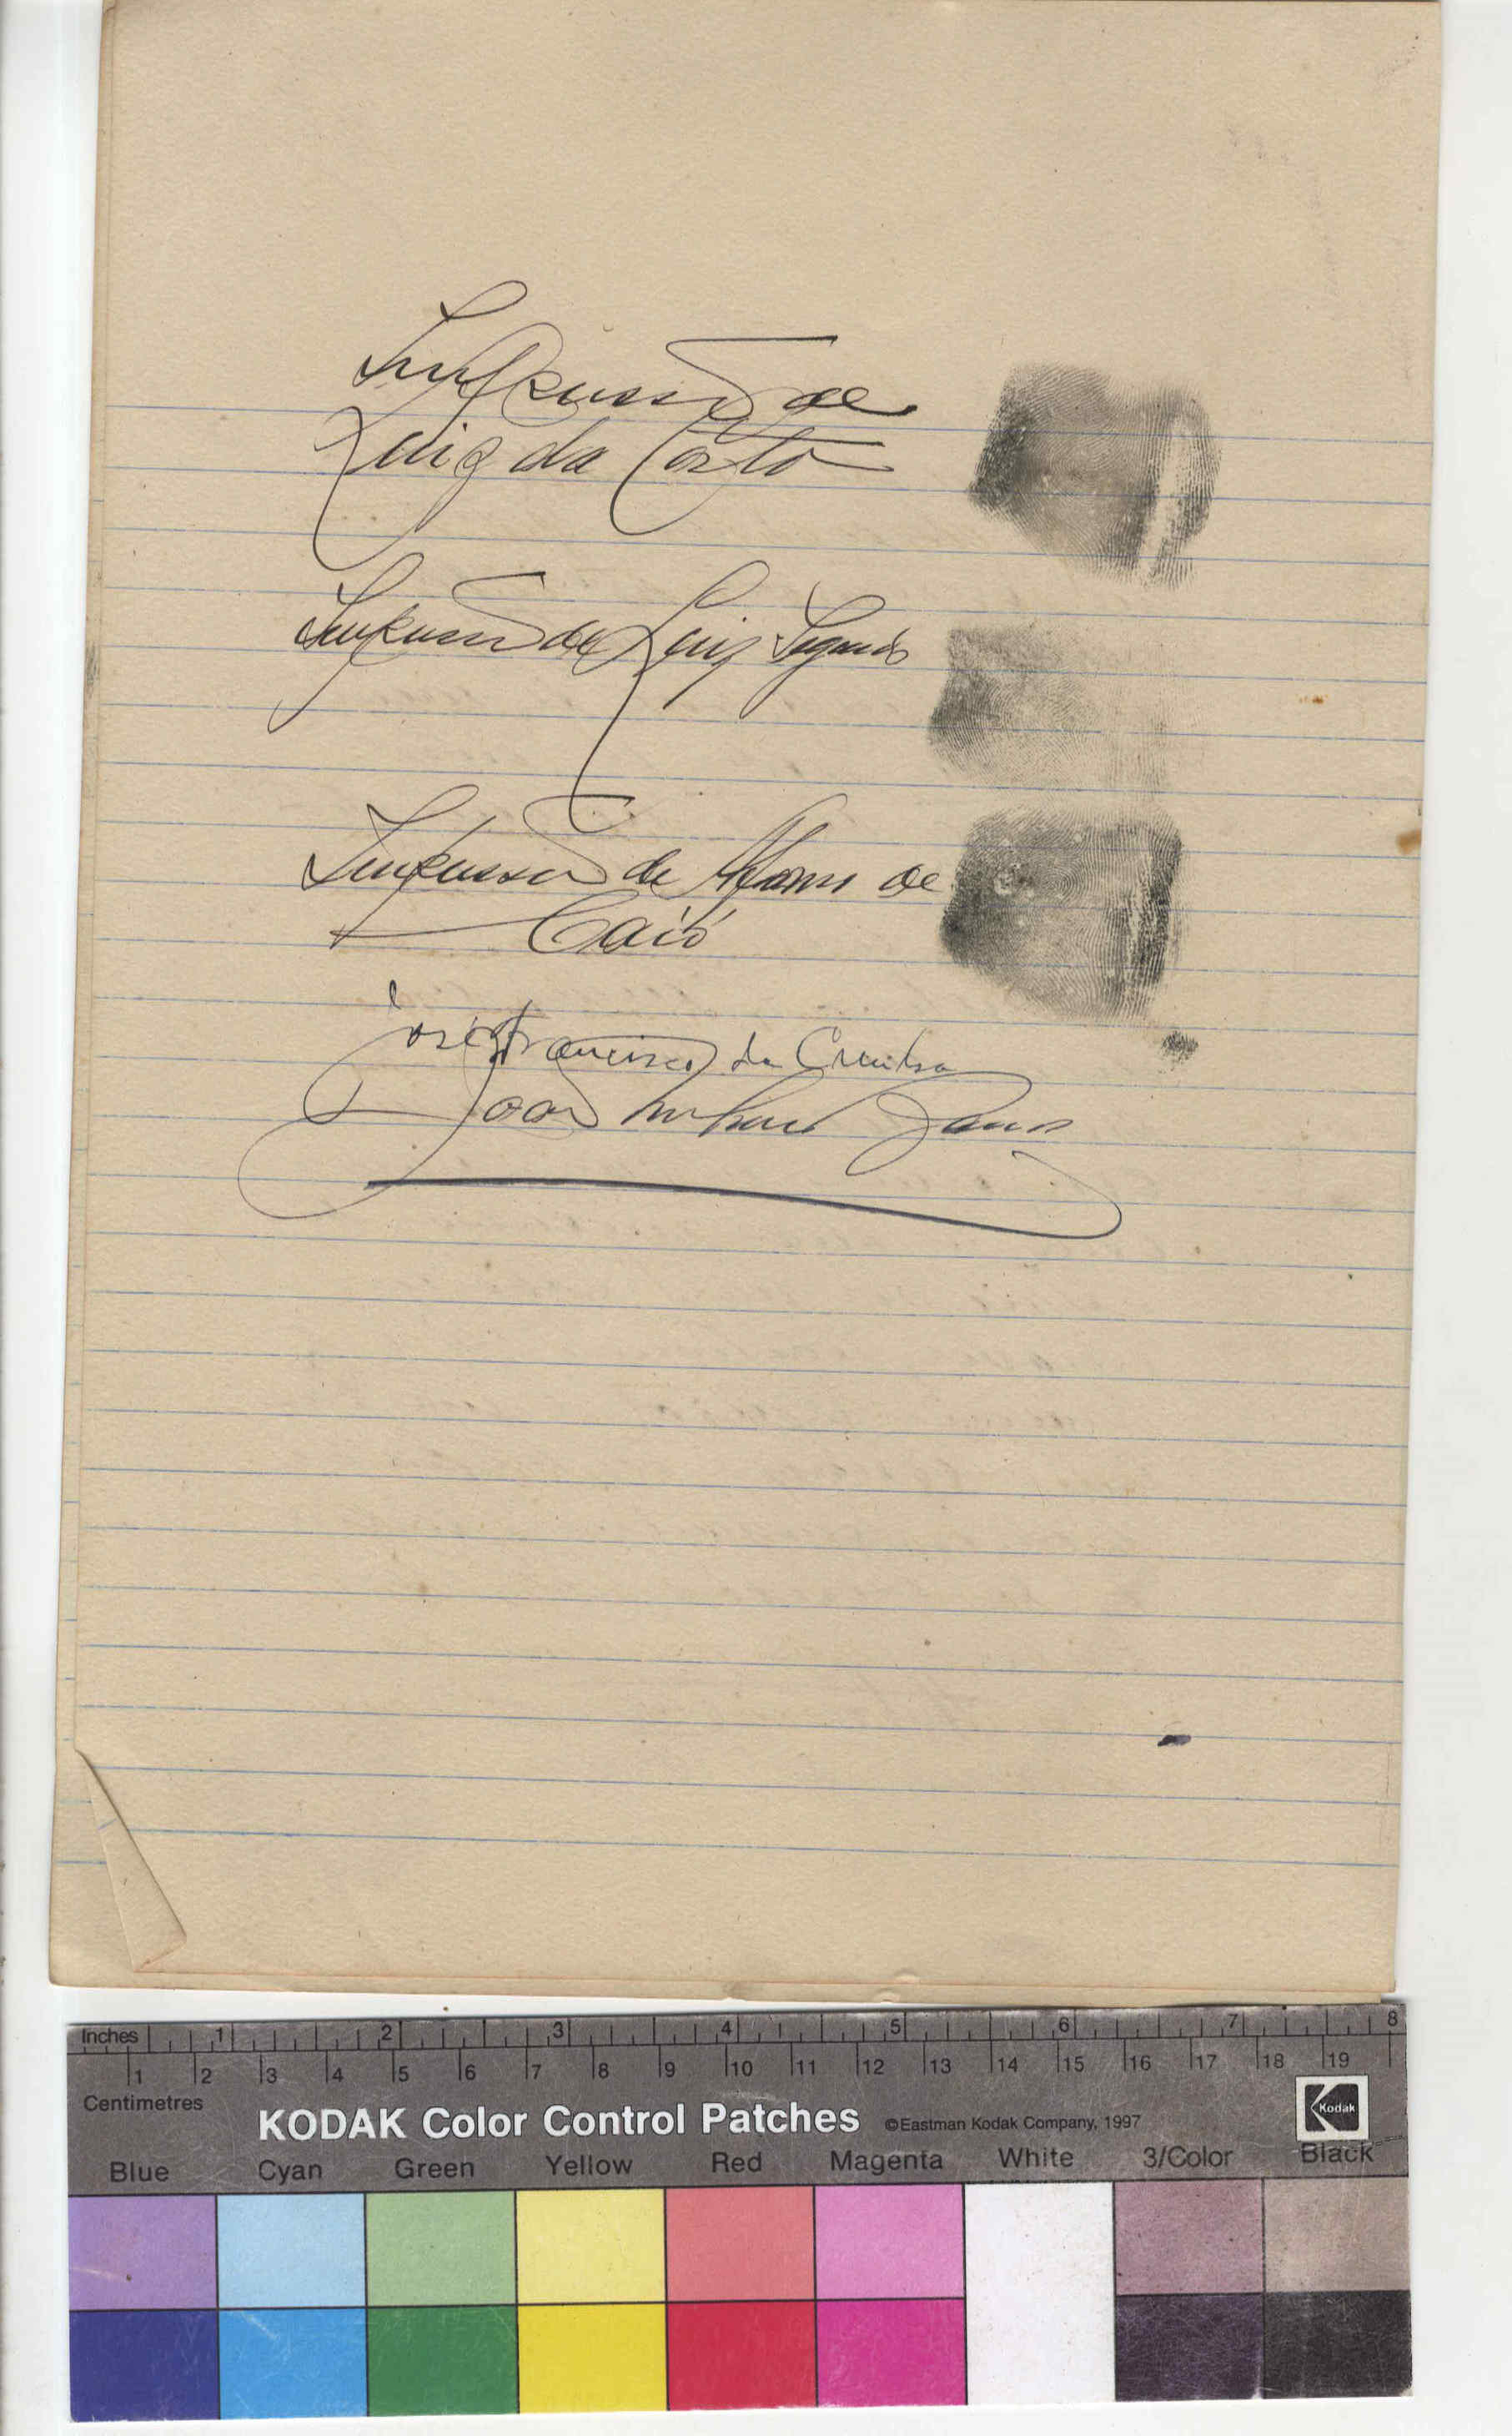 Impressão de
Luiz da Costa
Impressão de Luiz Segundo
Impressão de Afonso de
Caió
José Francisco da
João
Inches 1 2 3 4 5 6 7 8
1 2 3 4 5 6 7 8 9 10 11 12 13 14 15 16 17 18 19
Centimetres
KODAK Color Control Patches ©Eastman Kodak Company, 1997 Kodak
Blue Cyan Green Yellow Red Magenta White 3/Color Black